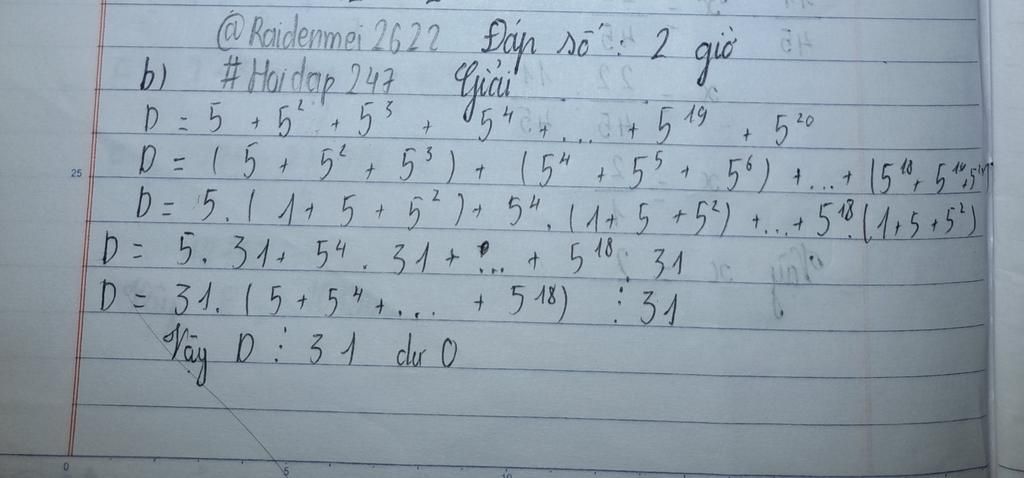 @Raidenmei2622 Đáp số : 2 giờ
b) #Hoidap247 Giải
D = 5 + 5² + 5³ + 5⁴ + ... + 5¹⁹ + 5²⁰
D = ( 5 + 5² + 5³ ) + ( 5⁴ + 5⁵ + 5⁶ ) + ... + ( 5¹⁸ + 5¹⁹ +
D = 5. ( 1 + 5 + 5² ) + 5⁴ . ( 1 + 5 + 5² ) + ... + 5¹⁸. ( 1 + 5 + 5² )
D = 5. 31 + 5⁴ . 31 + ... + 5¹⁸ . 31
D = 31. ( 5 + 5⁴ + ... + 5¹⁸ ) ⋮ 31
Vậy D ⋮ 31 dư 0
25
0 5 10